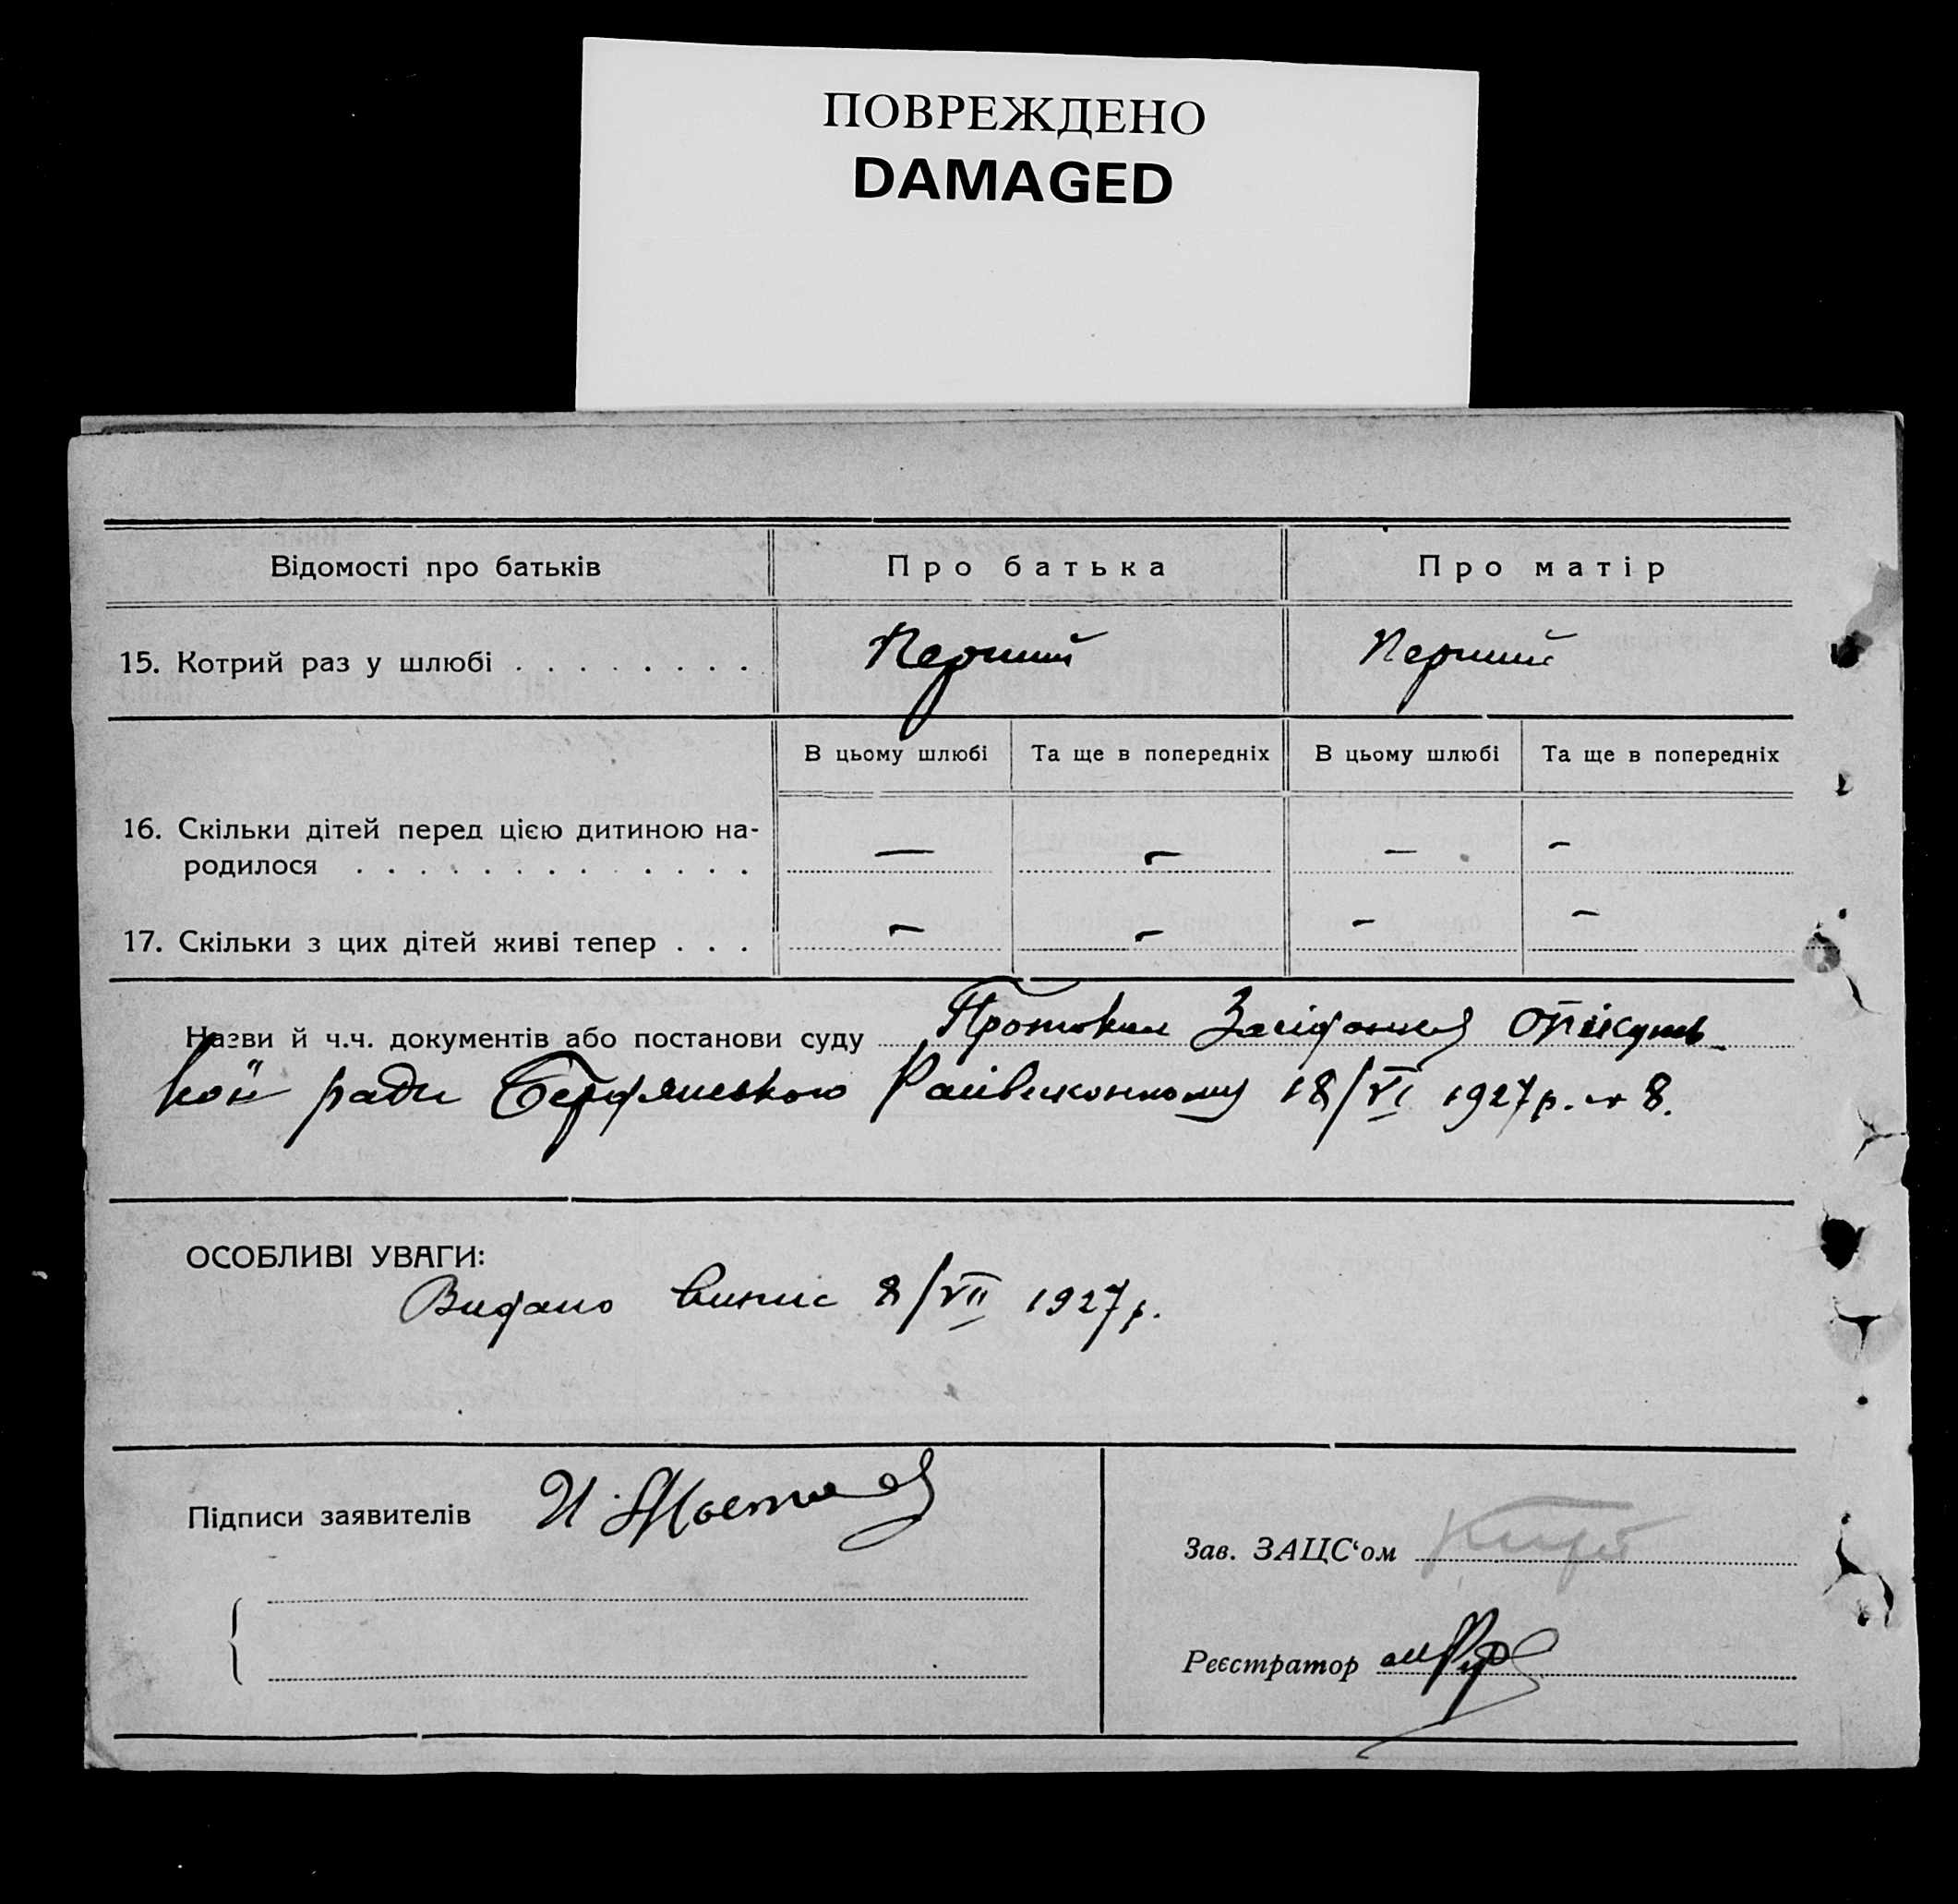 ПОВРЕЖДЕНО
DAMAGED
Відомості про батьків Про батька Про матір
15. Котрий раз у шлюбі . . . . . . . . Перший Перший
В цьому шлюбі Та ще в попередніх В цьому шлюбі Та ще в попередніх
16. Скільки дітей перед цією дитиною на-
родилося . . . . . . . . . . . . . — — — —
17. Скільки з цих дітей живі тепер . . . — — — —
Назви й ч.ч. документів або постанови суду Протокол Засідання Опікунсь-
кої ради Бердянського Райвиконкому 18/VI 1927р. № 8.
ОСОБЛИВІ УВАГИ:
Видано випис 8/VII 1927р.
Підписи заявителів И.
Зав. ЗАЦС‘ом
Реєстратор